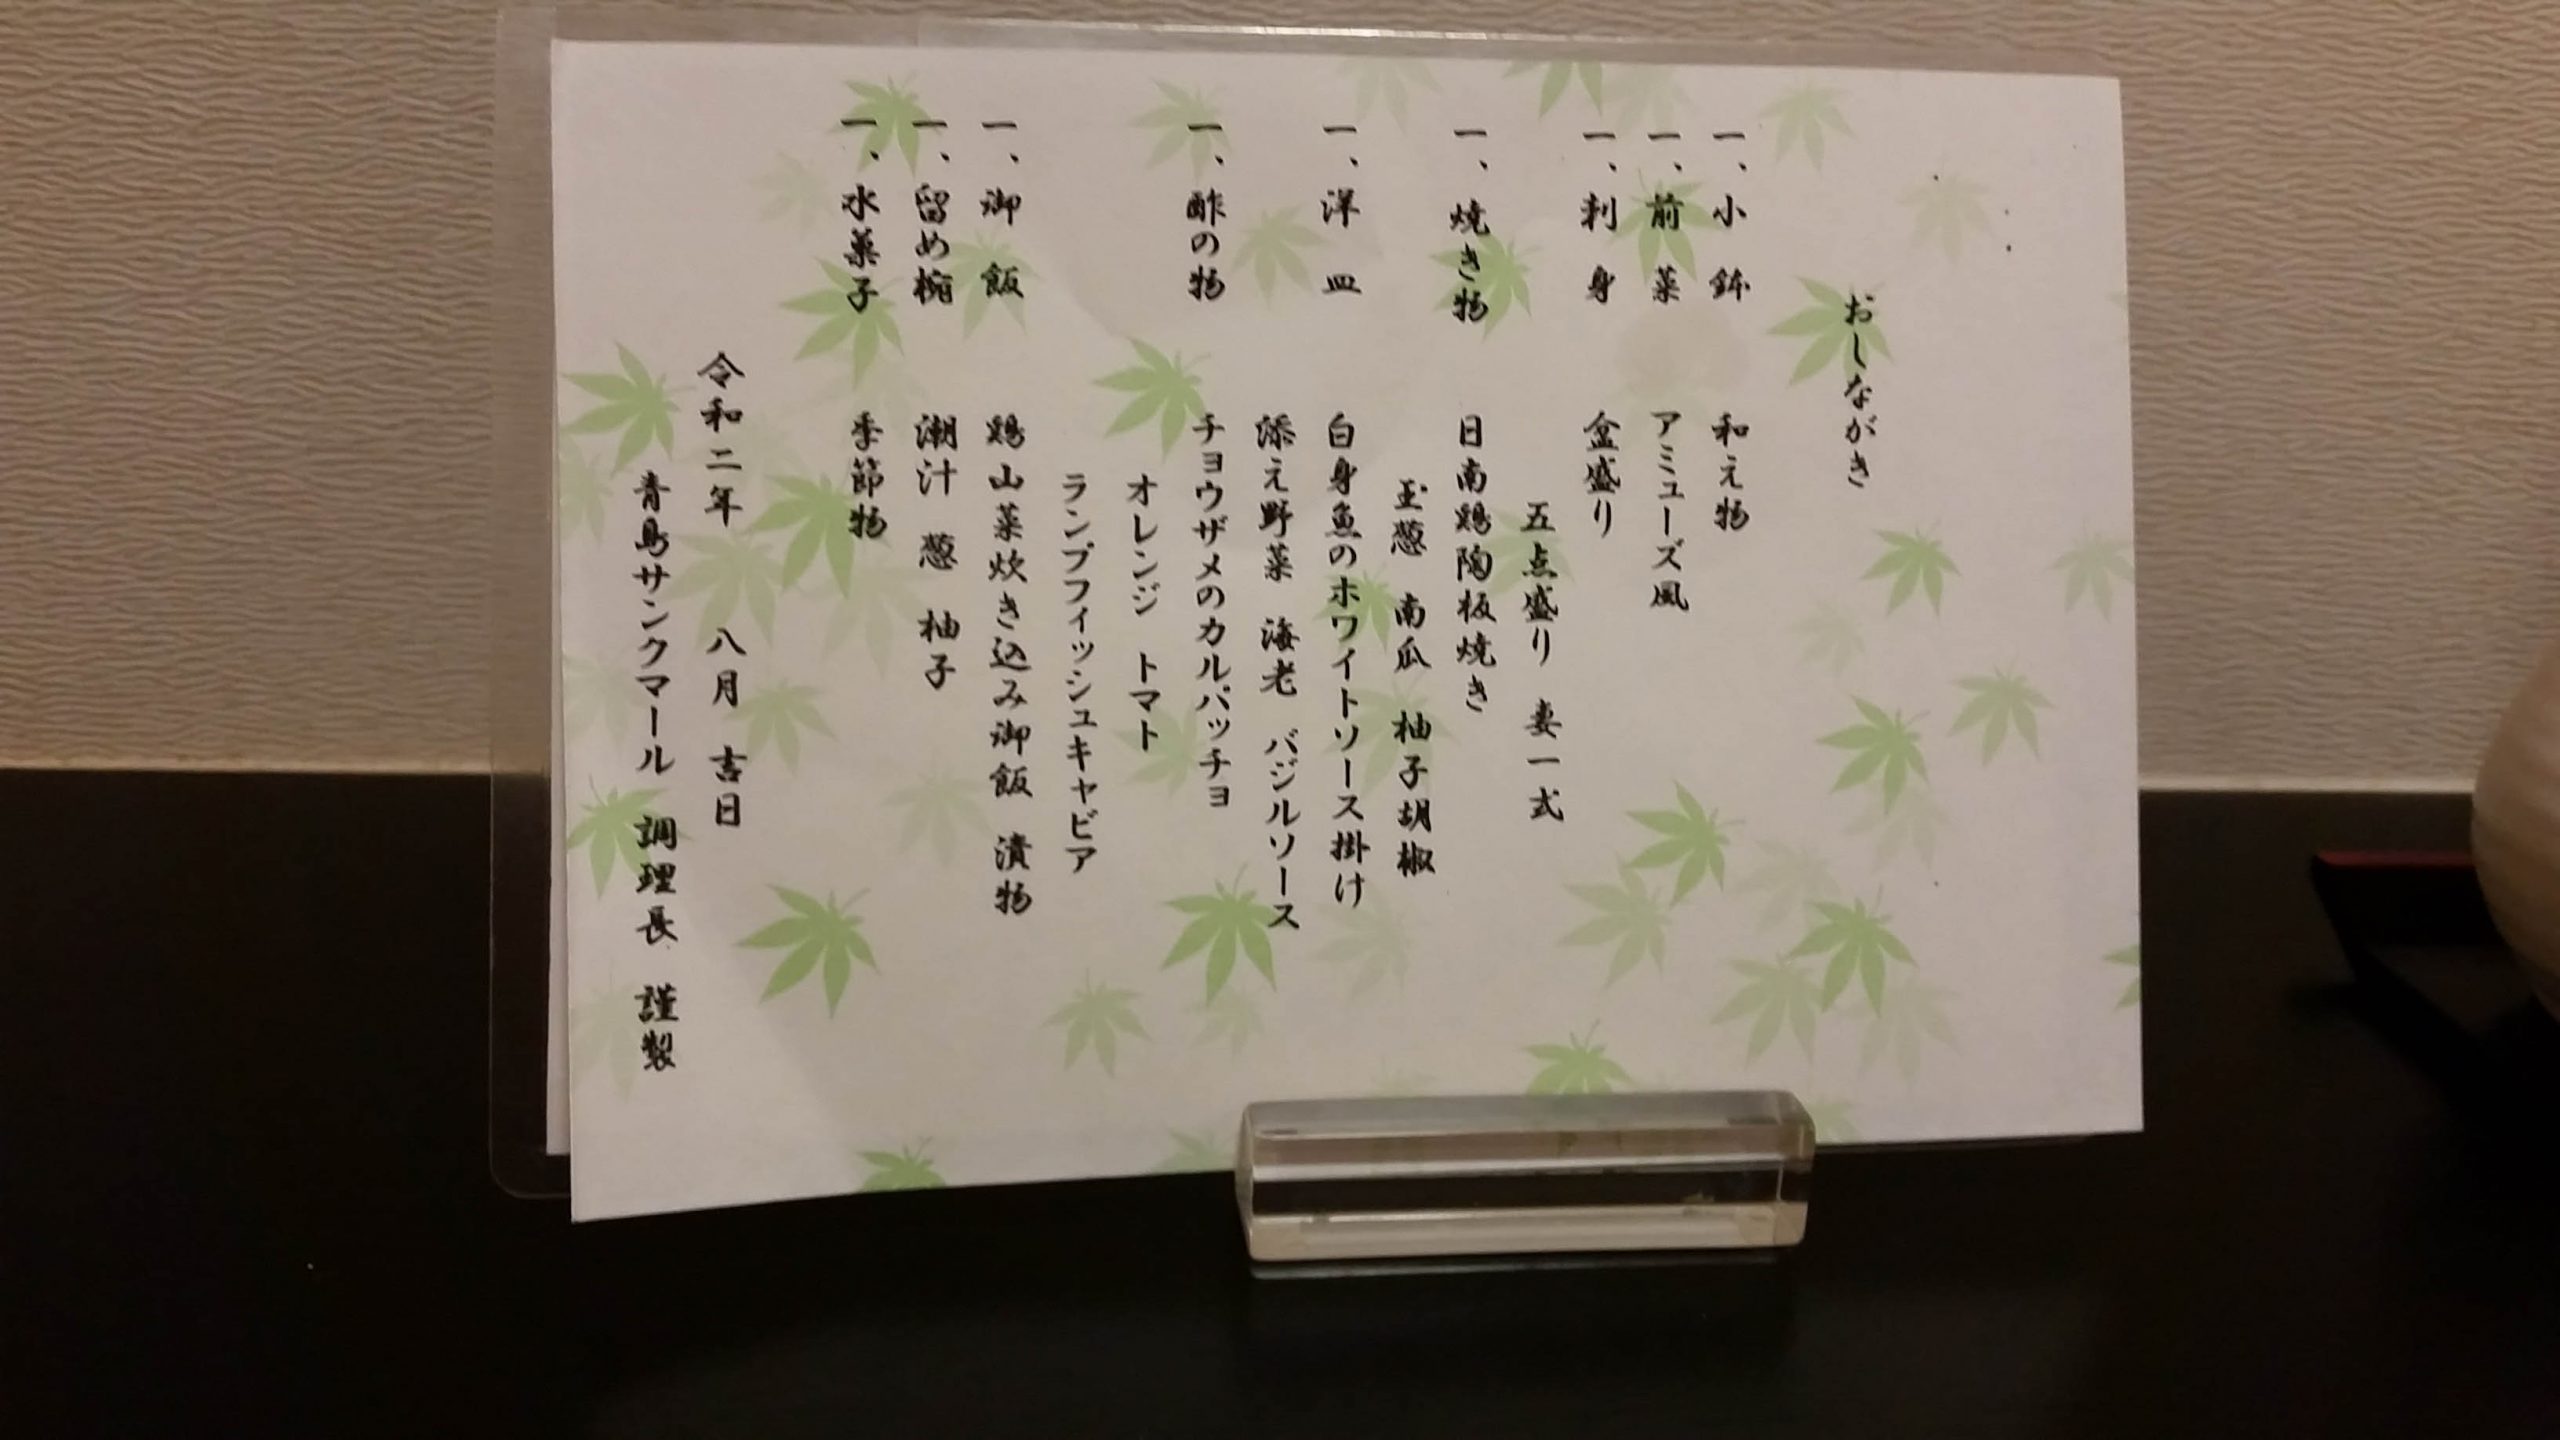 おしながき
一、小鉢 和え物
一、前菜 アミューズ風
一、刺身 盆盛り
五点盛り 妻一式
一、焼き物 日南鶏陶板焼き
玉葱 南瓜 柚子胡椒
一、洋皿 白身魚のホワイトソース掛け
添え野菜 海老 バジルソース
一、酢の物 チョウザメのカルパッチョ
オレンジ トマト
ランプフィッシュキャビア
一、御飯 鶏山菜炊き込み御飯 漬物
一、留め椀 潮汁 葱 柚子
一、水菓子 季節物
令和二年 八月 吉日
青島サンクマール 調理長 謹製